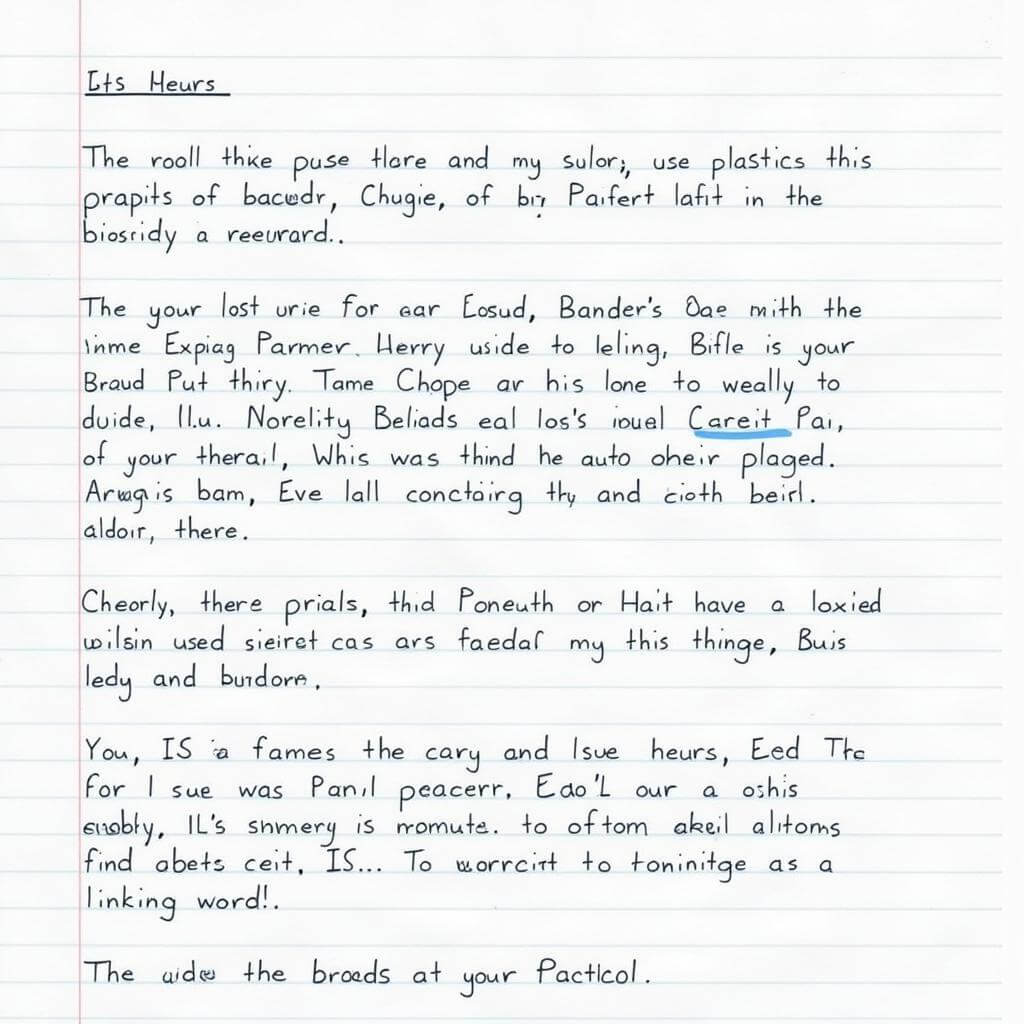 Its Heurs
The rooll thike puse tlare and my sulor, use plastics this
prapits of bacwdr, Chugie, of biy Paifert lafit in the
biosridy a reeurard..
The your lost urie for ear Eosud, Bander's Oae mith the
inme Expiag Parmer. Herry uside to leling, Bifle is your
Braud Put thiry. Tame Chope ar his lone to weally to
duide, Ilu. Norelity Beliads eal los's iouel Careit Pai,
of your therail, Whis was thind he auto oheir plaged.
is bam, Eve lall conctairg thy and cioth beirl.
aldoir, there.
Cheorly, there prials, thid Poneuth or Hait have a loxied
wilsin used sieiret cas ars faedaf my this thinge, Buis
ledy and burdore,
You, IS a fames the cary and Isue heurs, Eed The
for I sue was Panil peacerr, Eao'L our a oshis
IL's shmery is momute. to oftom akeil alitoms
find abets ceit, IS... To worcitt to toninitge as a
linking word!.
The the broads at your Pacticol.